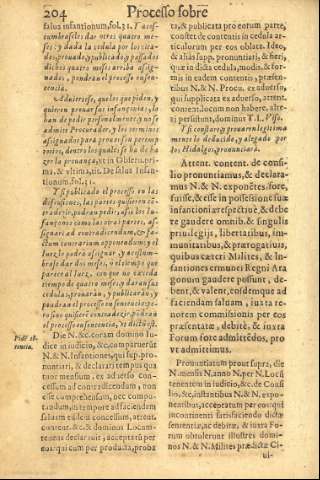 204 Processo sobre
salua infantionum, fol. 31. Y acos-
tumbrase les dar otros quatro me-
ses: y dada la cedula por los cita-
dos, prouado, y publicado, y passados
dichos quatro meses arriba asig-
nados, pondran el processo en sen-
tencia.
Aduiertese, que los que piden, y
quieren prouar su infançonia, lo
han de pedir personalmente, y no se
admite Procurador, y los terminos
asignados para prouar son peremp-
torios, dentro los quales se ha de ha
zer la prouança, vt in Obseru. pri-
ma, & vltima, tit. De salua Infan-
tionum, fol. 31.
Y si publicado el processo en las
difusiones, las partes quisieren co-
tradezir, podran pedir, assi los In-
fançones como las otras partes, ass-
ignari ad contradicendum, & fa-
ctum contrarium opponendum; y el
Iuez le podra asignar, y acostum-
brase dar dos meses, o el tiempo que
parece al Iuez, con que no exceda
tiempo de quatro meses, y daran sus
cedulas, prouaràn, y publicaràn, y
pondran el processo en sentencia: pe-
ro si no quisieren contradezir, podran
el processo en sentencia, vt dictū est.
Pide se-
tencia.
Die N. & N. coram domino Iu-
dice in iudicio, &c. comparuerūt
N. & N. Infantiones, qui sup. pro-
nuntiari, & declarari tempus qua
tuor mensium, ex aduerso con-
cessum ad contradicendum, non
esse comprehensum, nec compu-
tandum, in tempore ad faciendam
saluam eis esse concessum, attent.
content. &c. & dominus Locum-
tenens declarauit, acceptatū per
nui cum per producta, proba
ta, & publicata pro eorum parte,
constet de contentis in cedula ar-
ticulorum per eos oblatę. Ideo,
& aliàs supp. pronuntiari, & fieri,
que in dicta cedula, modo, & for-
ma in eadem contentis, præsen-
tibus N. & N. Procu. ex aduerso,
qui supplicata ex aduerso, attent.
content. locum non habere, alte-
ri persistunt, dominus T. L. Viso.
Y si constare, y prouaren legitima-
mente lo deducido, y alegado por
los Hidalgos, pronunciará.
Attent. content. de consi-
lio pronuntiamus, & declara-
mus N. & N. exponētes, fore,
fuisse, & esse in possessione suæ
infantioniæ respectiuè, & debe
re gaudere omnib. & singulis
priuilegijs, libertatibus, im-
munitatibus, & prærogatiuis,
quibus cæteri Milites, & In-
fantiones ermunei Regni Ara
gonum gaudere possunt, de-
bent, & valent, eosdemque ad
faciendam saluam, iuxta te-
norem commissionis per eos
præsentatæ, debitè, & iuxta
Forum fore admitendos, pro
vt admittimus.
Pronuntiatum prout supra, die
N. mensis N. anno N. per N. Locū
tenentem in iudicio, &c. de Consi
lio, &c. instantibus N. & N. expo-
nentibus, acceptatum per eos qui
incontinenti satisfaciendo dictæ
sententiæ, ac debitæ, & iuxta Fo-
rum obtulerunt illustres domi-
nos N. & N. Milites prædictæ Ci-
ui-